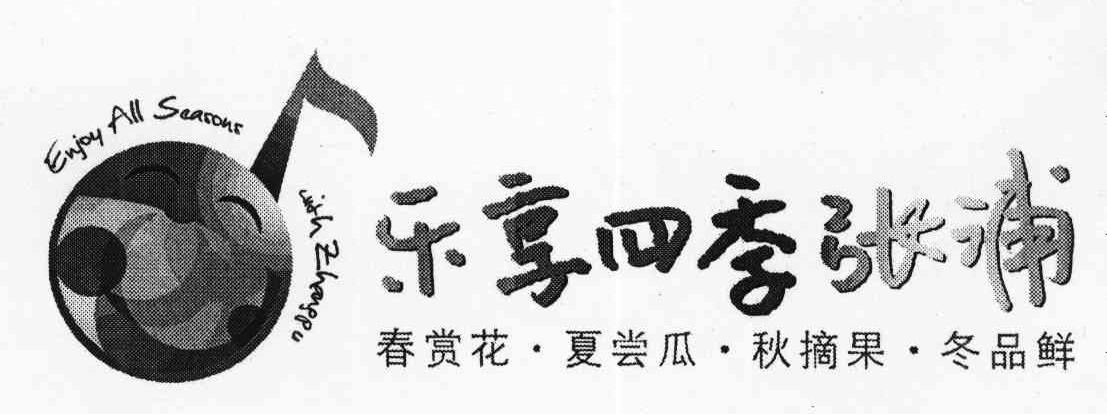 Enjoy All Seasons
with Zhangpu
乐享四季张浦
春赏花·夏尝瓜·秋摘果·冬品鲜